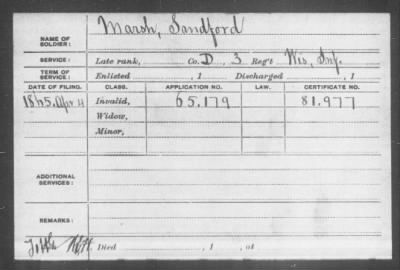 NAME OF SOLDIER: Marsh, Sandford
SERVICE: Late rank, Co. D, 3 Reg't Wis, Inf.
TERM OF SERVICE: Enlisted , 1 Discharged , 1
DATE OF FILING. CLASS. APPLICATION NO. LAW. CERTIFICATE NO.
1865, Apr 4 Invalid, 65.179 81.977
Widow,
Minor,
ADDITIONAL SERVICES:
REMARKS:
Died , 1 , at